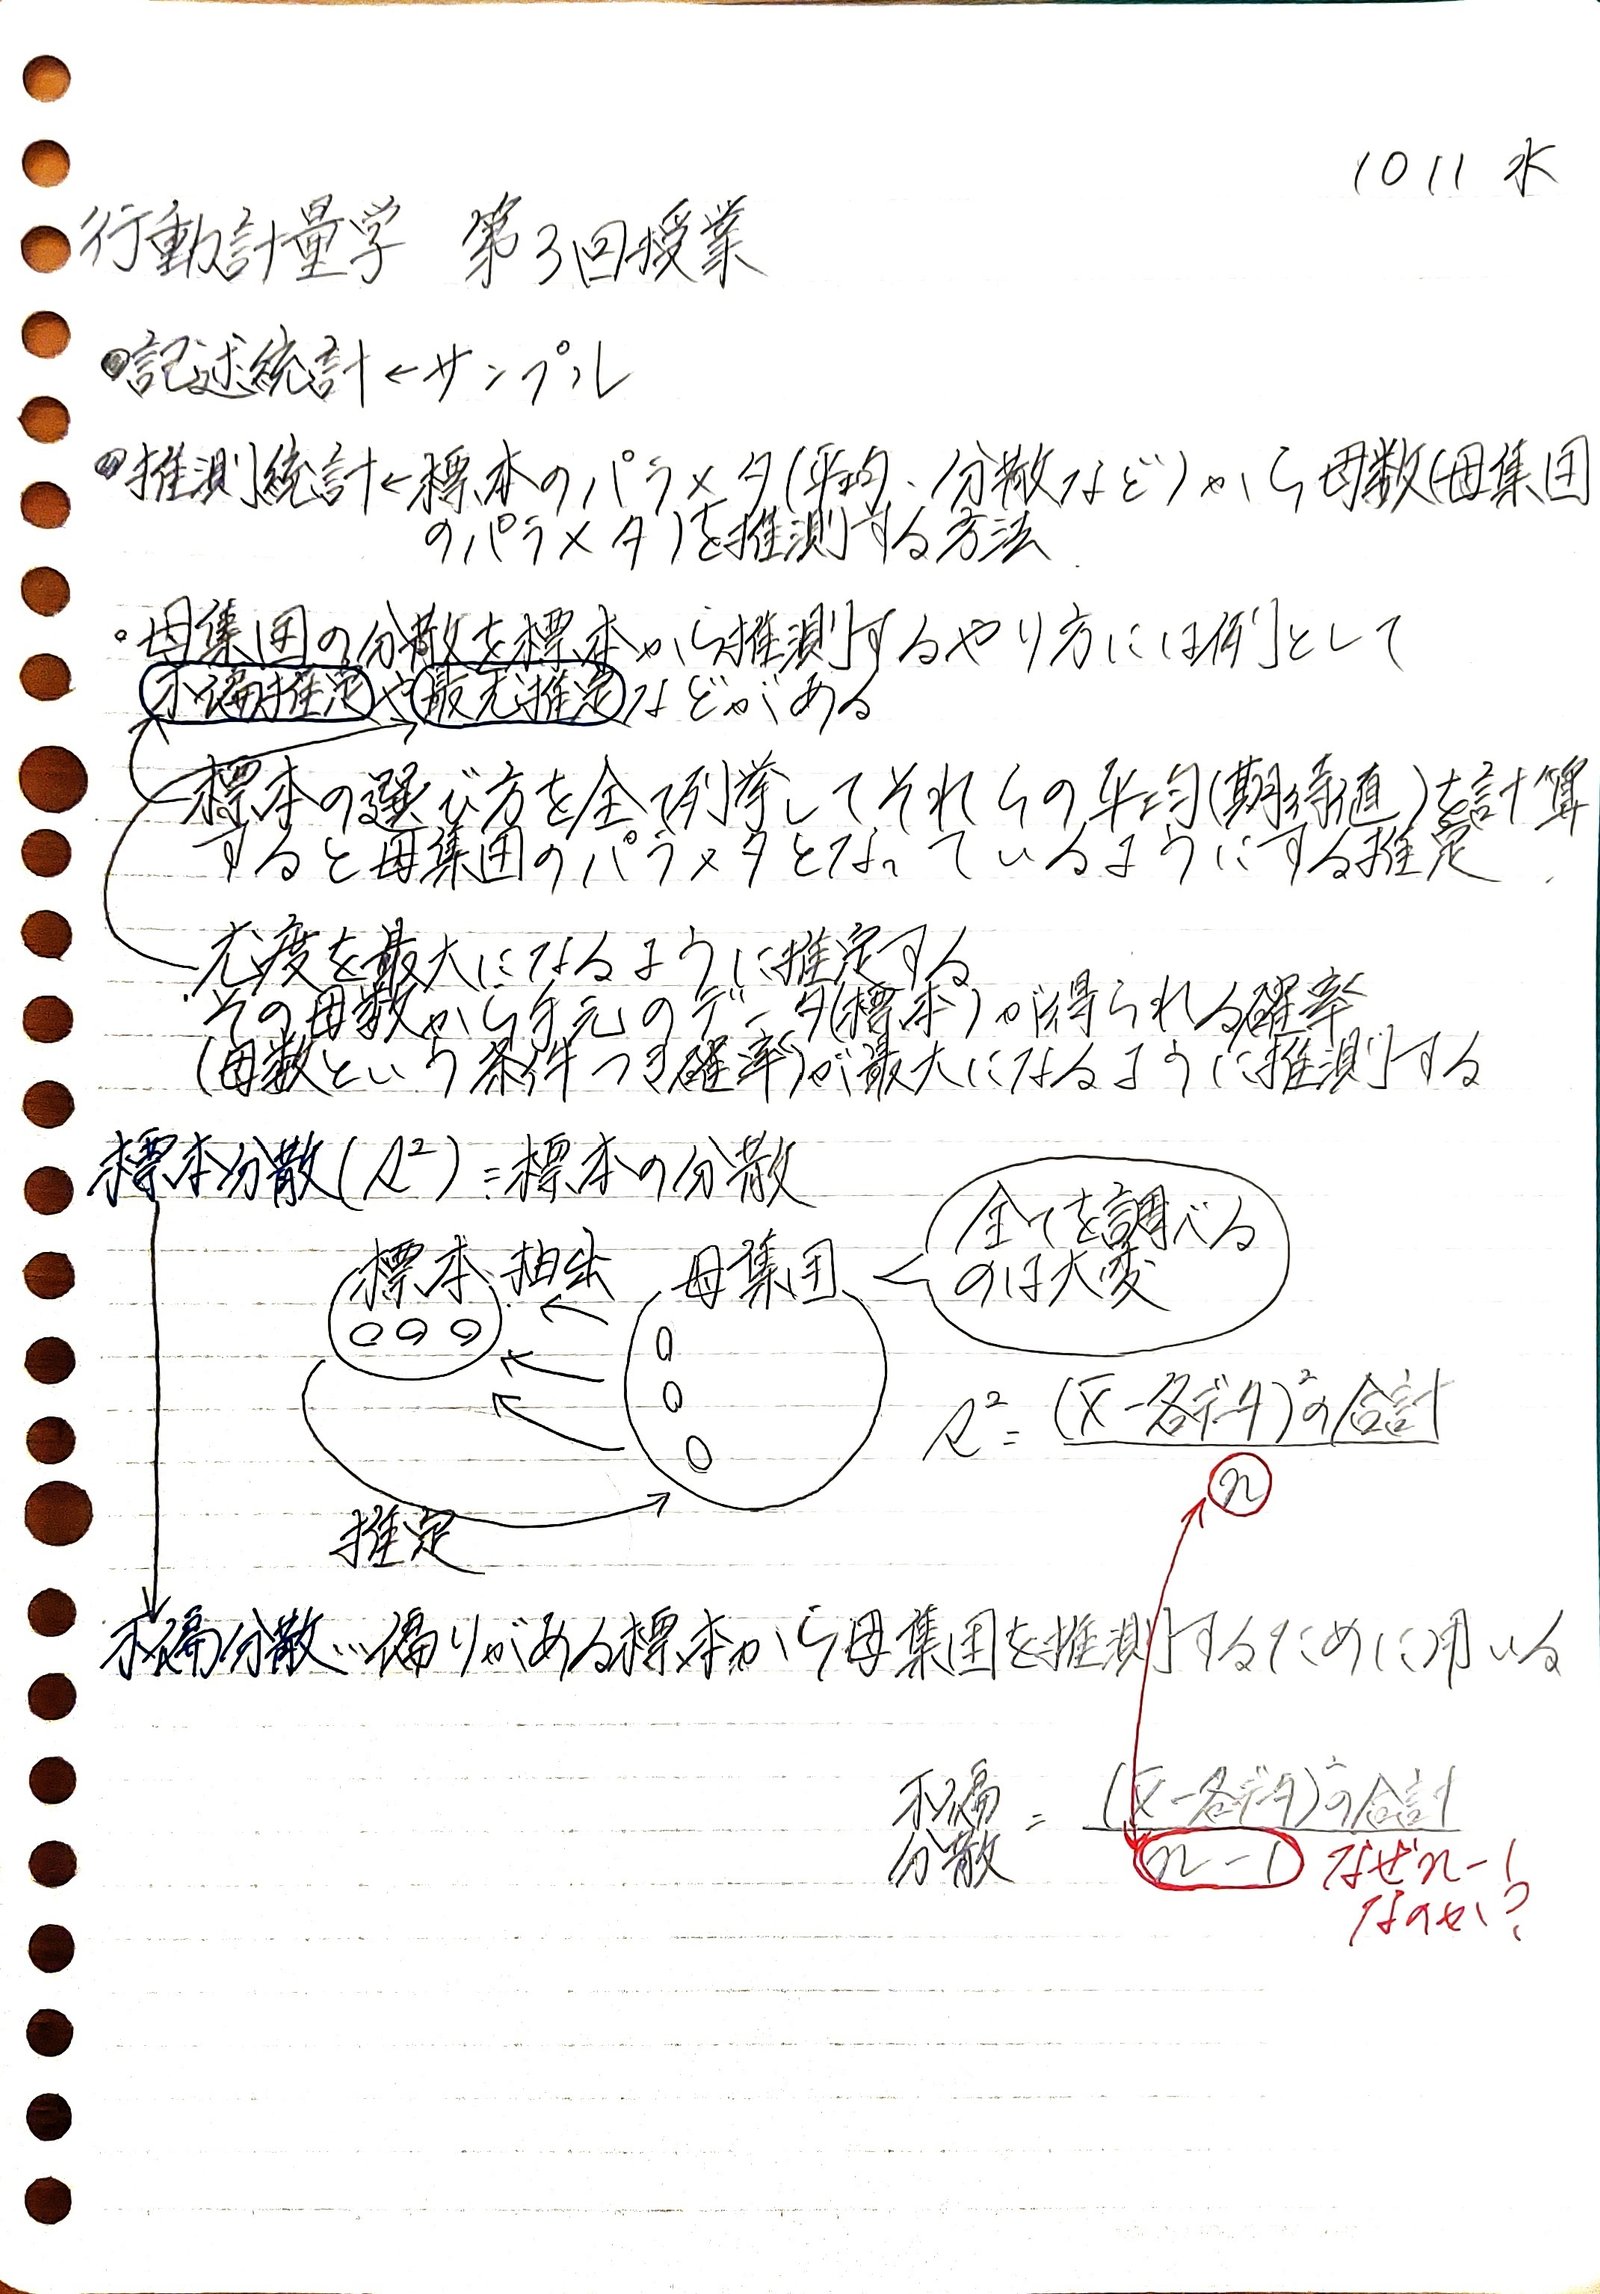 1011 水
行動計量学 第3回授業
●記述統計←サンプル
●推測統計←標本のパラメタ(平均、分散など)から母数(母集団
のパラメタ)を推測する方法
・母集団の分散を標本から推測するやり方には例として
不偏推定や最尤推定などがある
標本の選び方を全て列挙してそれらの平均(期待値)を計算
すると母集団のパラメタとなっているようにする推定
尤度を最大になるように推定する
その母数から手元のデータ(標本)が得られる確率
(母数という条件つき確率)が最大になるように推測する
標本分散(s²)=標本の分散
標本 抽出 母集団
全てを調べる
のは大変
s²= (x̄-各データ)²の合計
n
推定
不偏分散…偏りがある標本から母集団を推測するために用いる
不偏
分散 = (x̄-各データ)²の合計
n-1 なぜn-1
なのか?